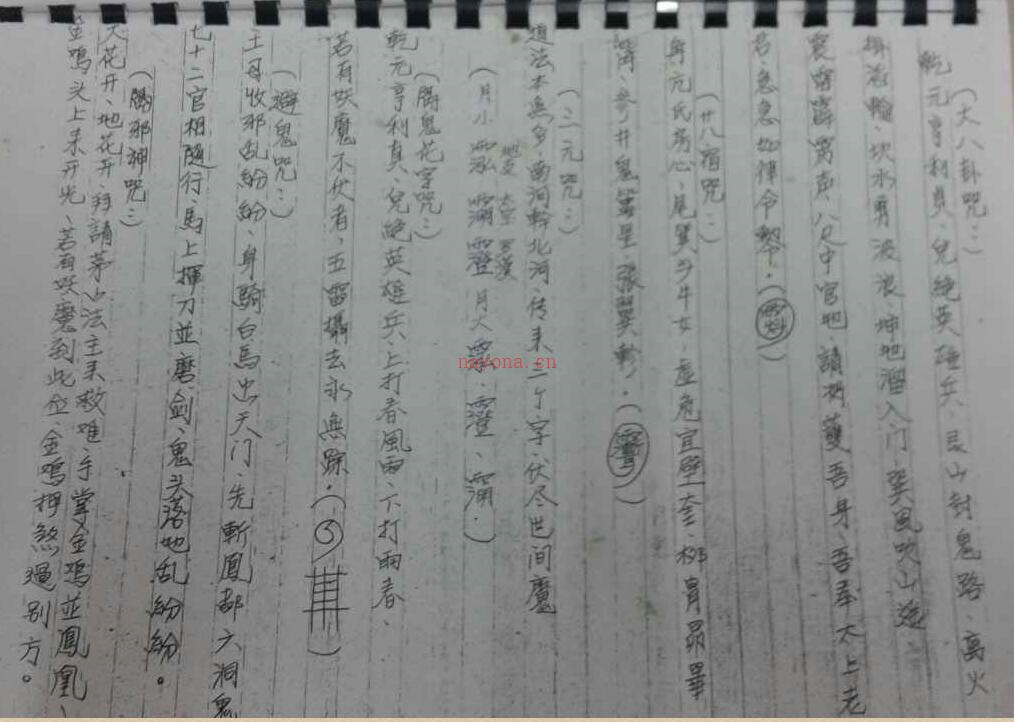 (大八卦咒:)
乾元亨利貞、兒絶英雄兵、艮山封鬼路、离火
輪、坎水勇波浪、坤地溜入门、巽風吹山遙
震雷霹靂声、八尺中宮地、請衲護吾身、吾奉太上老
君、急急如律令。()
(廿八宿咒:)
角亢氐房心、尾箕斗牛女、虚危宜壁奎、柳胃昴畢
觜、参井鬼星、張翼軫、()
(三元咒:)
道法本無多、南河幹北河、传来三个字、伏尽世间魔
(月小、月大)
(隔鬼花字咒:)
乾元亨利真、兒絶英雄兵、上打春風雨、下打雨春、
若有妖魔不伏者、五雷攝去永無踪。()
(避鬼咒:)
王母收邪乱紛紛、身騎白馬出天门、先斬鳳都六洞鬼
七十二官相随行、馬上揮刀並磨剑、鬼头落地乱紛紛。
(隔邪神咒:)
天花开、地花开、拜請茅山法主来救难、手掌金鸡並鳳凰、
金鸡头上来开光、若有妖魔到此位、金鸡押煞過别方。
nayona.cn